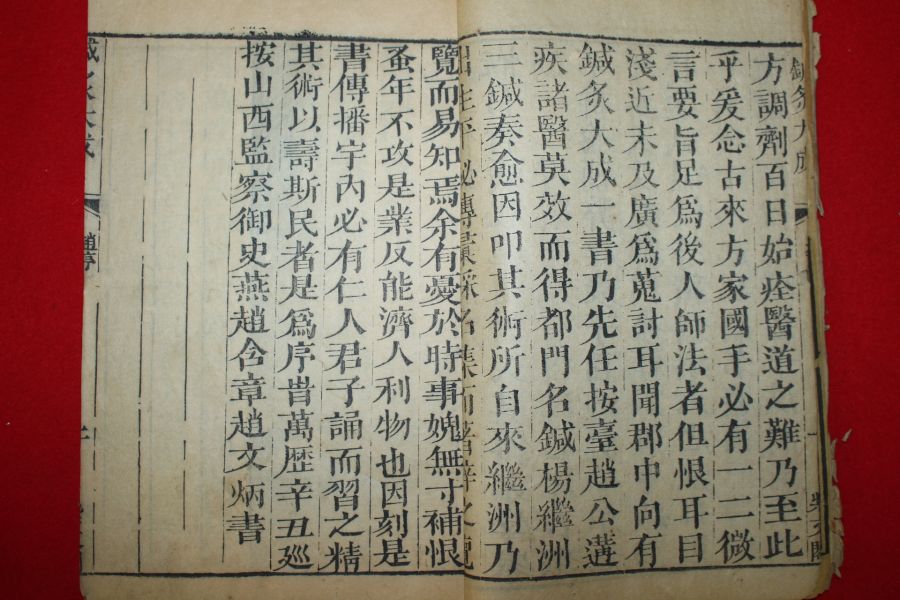 鍼灸大成
方調劑百日始痊醫道之難乃至此
乎爰念古來方家國手必有一二微
言要旨足爲後人師法者但恨耳目
淺近未及廣爲蒐討耳聞郡中向有
鍼灸大成一書乃先任按臺趙公遘
疾諸醫莫效而得都門名鍼楊繼洲
三鍼奏愈因叩其術所自來繼洲乃
出生平秘傳彙採名集而
覽而易知焉余有憂於時事媿無寸補恨
蚤年不攻是業反能濟人利物也因刻是
書傳播宇內必有仁人君子誦而習之精
其術以壽斯民者是爲序旹萬歷辛丑廵
按山西監察御史燕趙含章趙文炳書
大成
趙序